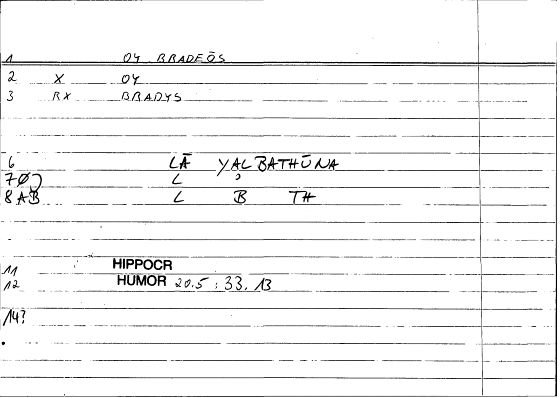 1 OY BRADEŌS
2 X OY
3 RX BRADYS
6 LĀ YALBATHŪNA
7 Ø) L ʾ
8 AB L B TH
11 HIPPOCR
12 HUMOR 20.5 : 33.13
14?